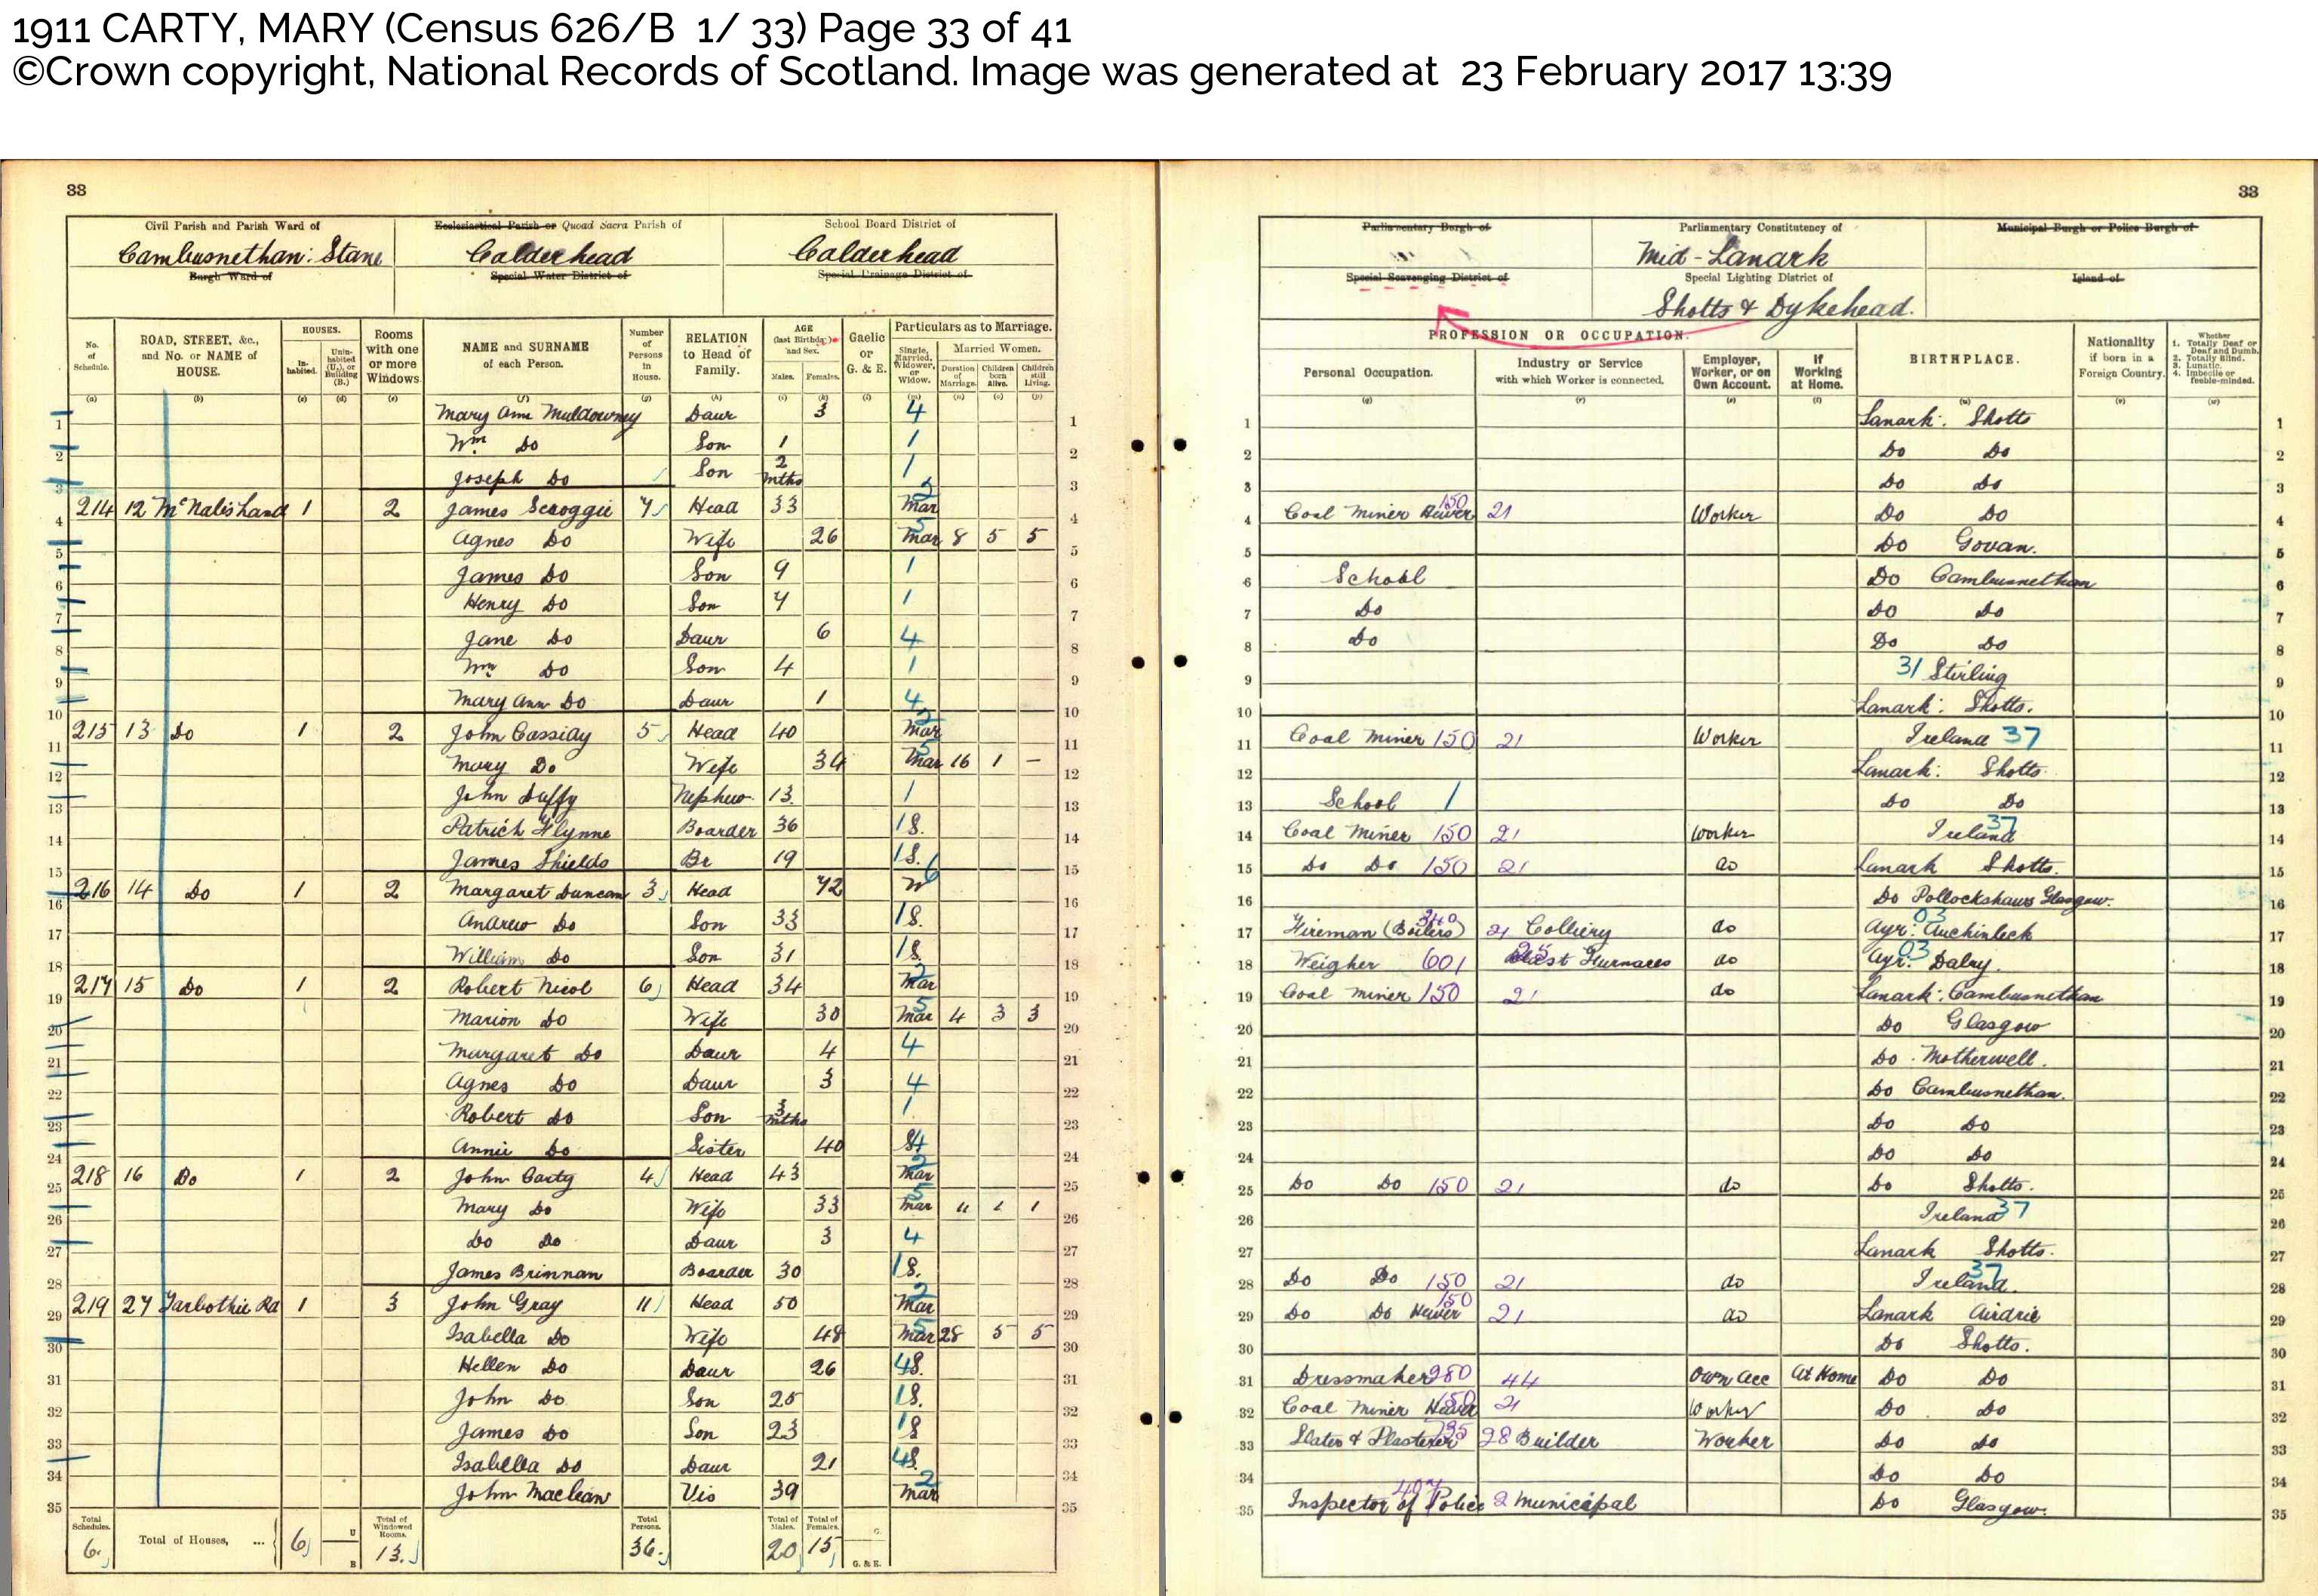 1911 CARTY, MARY (Census 626/B 1/ 33) Page 33 of 41
©Crown copyright, National Records of Scotland. Image was generated at 23 February 2017 13:39
33
33
Civil Parish and Parish Ward of
Cambusnethan: Stane
Burgh Ward of
Ecclesiastical Parish or Quoad Sacra Parish of
Calderhead
Special Water District of
School Board District of
Calderhead
Special Drainage District of
Parliamentary Burgh of
Special Scavenging District of
Parliamentary Constituency of
Mid-Lanark
Special Lighting District of
Shotts & Dykehead.
Municipal Burgh or Police Burgh of
Island of
No. of Schedule. (a)
ROAD, STREET, &c., and No. or NAME of HOUSE. (b)
HOUSES. Inhabited. (c) Uninhabited (U.), or Building (B.) (d)
Rooms with one or more Windows. (e)
NAME and SURNAME of each Person. (f)
Number of Persons in House. (g)
RELATION to Head of Family. (h)
AGE (last Birthday) and Sex. Males. (i) Females. (k)
Gaelic or G. & E. (l)
Particulars as to Marriage.
Single, Married, Widower, or Widow. (m)
Married Women.
Duration of Marriage. (n) Children born Alive. (o) Children still Living. (p)
PROFESSION OR OCCUPATION.
Personal Occupation. (q)
Industry or Service with which Worker is connected. (r)
Employer, Worker, or on Own Account. (s)
If Working at Home. (t)
BIRTHPLACE. (u)
Nationality if born in a Foreign Country. (v)
Whether 1. Totally Deaf or Deaf and Dumb. 2. Totally Blind. 3. Lunatic. 4. Imbecile or feeble-minded. (w)
1 Mary Ann Muldowney Daur 3 4 Lanark: Shotts 1
2 Wm Do Son 1 1 Do Do 2
3 Joseph Do Son 2 mths 1 Do Do 3
4 214 12 McNabs Land 1 2 James Scroggie 7 Head 33 Mar 2 Coal Miner Hewer 150 21 Worker Do Do 4
5 Agnes Do Wife 26 Mar 5 8 5 5 Do Govan. 5
6 James Do Son 9 1 School Do Cambusnethan 6
7 Henry Do Son 7 1 Do Do Do 7
8 Jane Do Daur 6 4 Do Do Do 8
9 Wm Do Son 4 1 31 Stirling 9
10 Mary Ann Do Daur 1 4 Lanark: Shotts. 10
11 215 13 Do 1 2 John Cassidy 5 Head 40 Mar 2 Coal Miner 150 21 Worker Ireland 37 11
12 Mary Do Wife 34 Mar 5 16 1 – Lanark: Shotts 12
13 John Duffy Nephew 13 1 School 1 Do Do 13
14 Patrick Flynne Boarder 36 1 S. Coal Miner 150 21 Worker Ireland 37 14
15 James Shields Br 19 1 S. Do Do 150 21 do Lanark Shotts. 15
16 216 14 Do 1 2 Margaret Duncan 3 Head 72 W 6 Do Pollockshaws Glasgow. 16
17 Andrew Do Son 33 1 S. Fireman (Boilers) 340 21 Colliery do Ayr: Auchinleck 03 17
18 William Do Son 31 1 S. Weigher 601 25 Blast Furnaces do Ayr: Dalry. 03 18
19 217 15 Do 1 2 Robert Nicol 6 Head 34 Mar 2 Coal Miner 150 21 do Lanark: Cambusnethan 19
20 Marion Do Wife 30 Mar 5 4 3 3 Do Glasgow 20
21 Margaret Do Daur 4 4 Do Motherwell. 21
22 Agnes Do Daur 3 4 Do Cambusnethan. 22
23 Robert Do Son 3 mths 1 Do Do 23
24 Annie Do Sister 40 S 4 Do Do 24
25 218 16 Do 1 2 John Carty 4 Head 43 Mar 2 Do Do 150 21 do Do Shotts. 25
26 Mary Do Wife 33 Mar 5 11 1 1 Ireland 37 26
27 Do Do Daur 3 4 Lanark Shotts. 27
28 James Brinnan Boarder 30 1 S. Do Do 150 21 do Ireland 37 28
29 219 27 Torbothie Rd 1 3 John Gray 11 Head 50 Mar 2 Do Do Hewer 150 21 do Lanark Airdrie 29
30 Isabella Do Wife 48 Mar 5 28 5 5 Do Shotts. 30
31 Hellen Do Daur 26 4 S. Dressmaker 280 44 Own Acc At Home Do Do 31
32 John Do Son 25 1 S. Coal Miner Hewer 150 21 Worker Do Do 32
33 James Do Son 23 1 S Slater & Plasterer 28 Builder Worker Do Do 33
34 Isabella Do Daur 21 4 S. Do Do 34
35 John Maclean Vis 39 Mar 2 Inspector of Police 2 Municipal Do Glasgow. 35
Total Schedules. 6
Total of Houses, ... 6 U B
Total of Windowed Rooms. 13.
Total Persons. 36.
Total of Males. 20
Total of Females. 15
G.
G. & E.